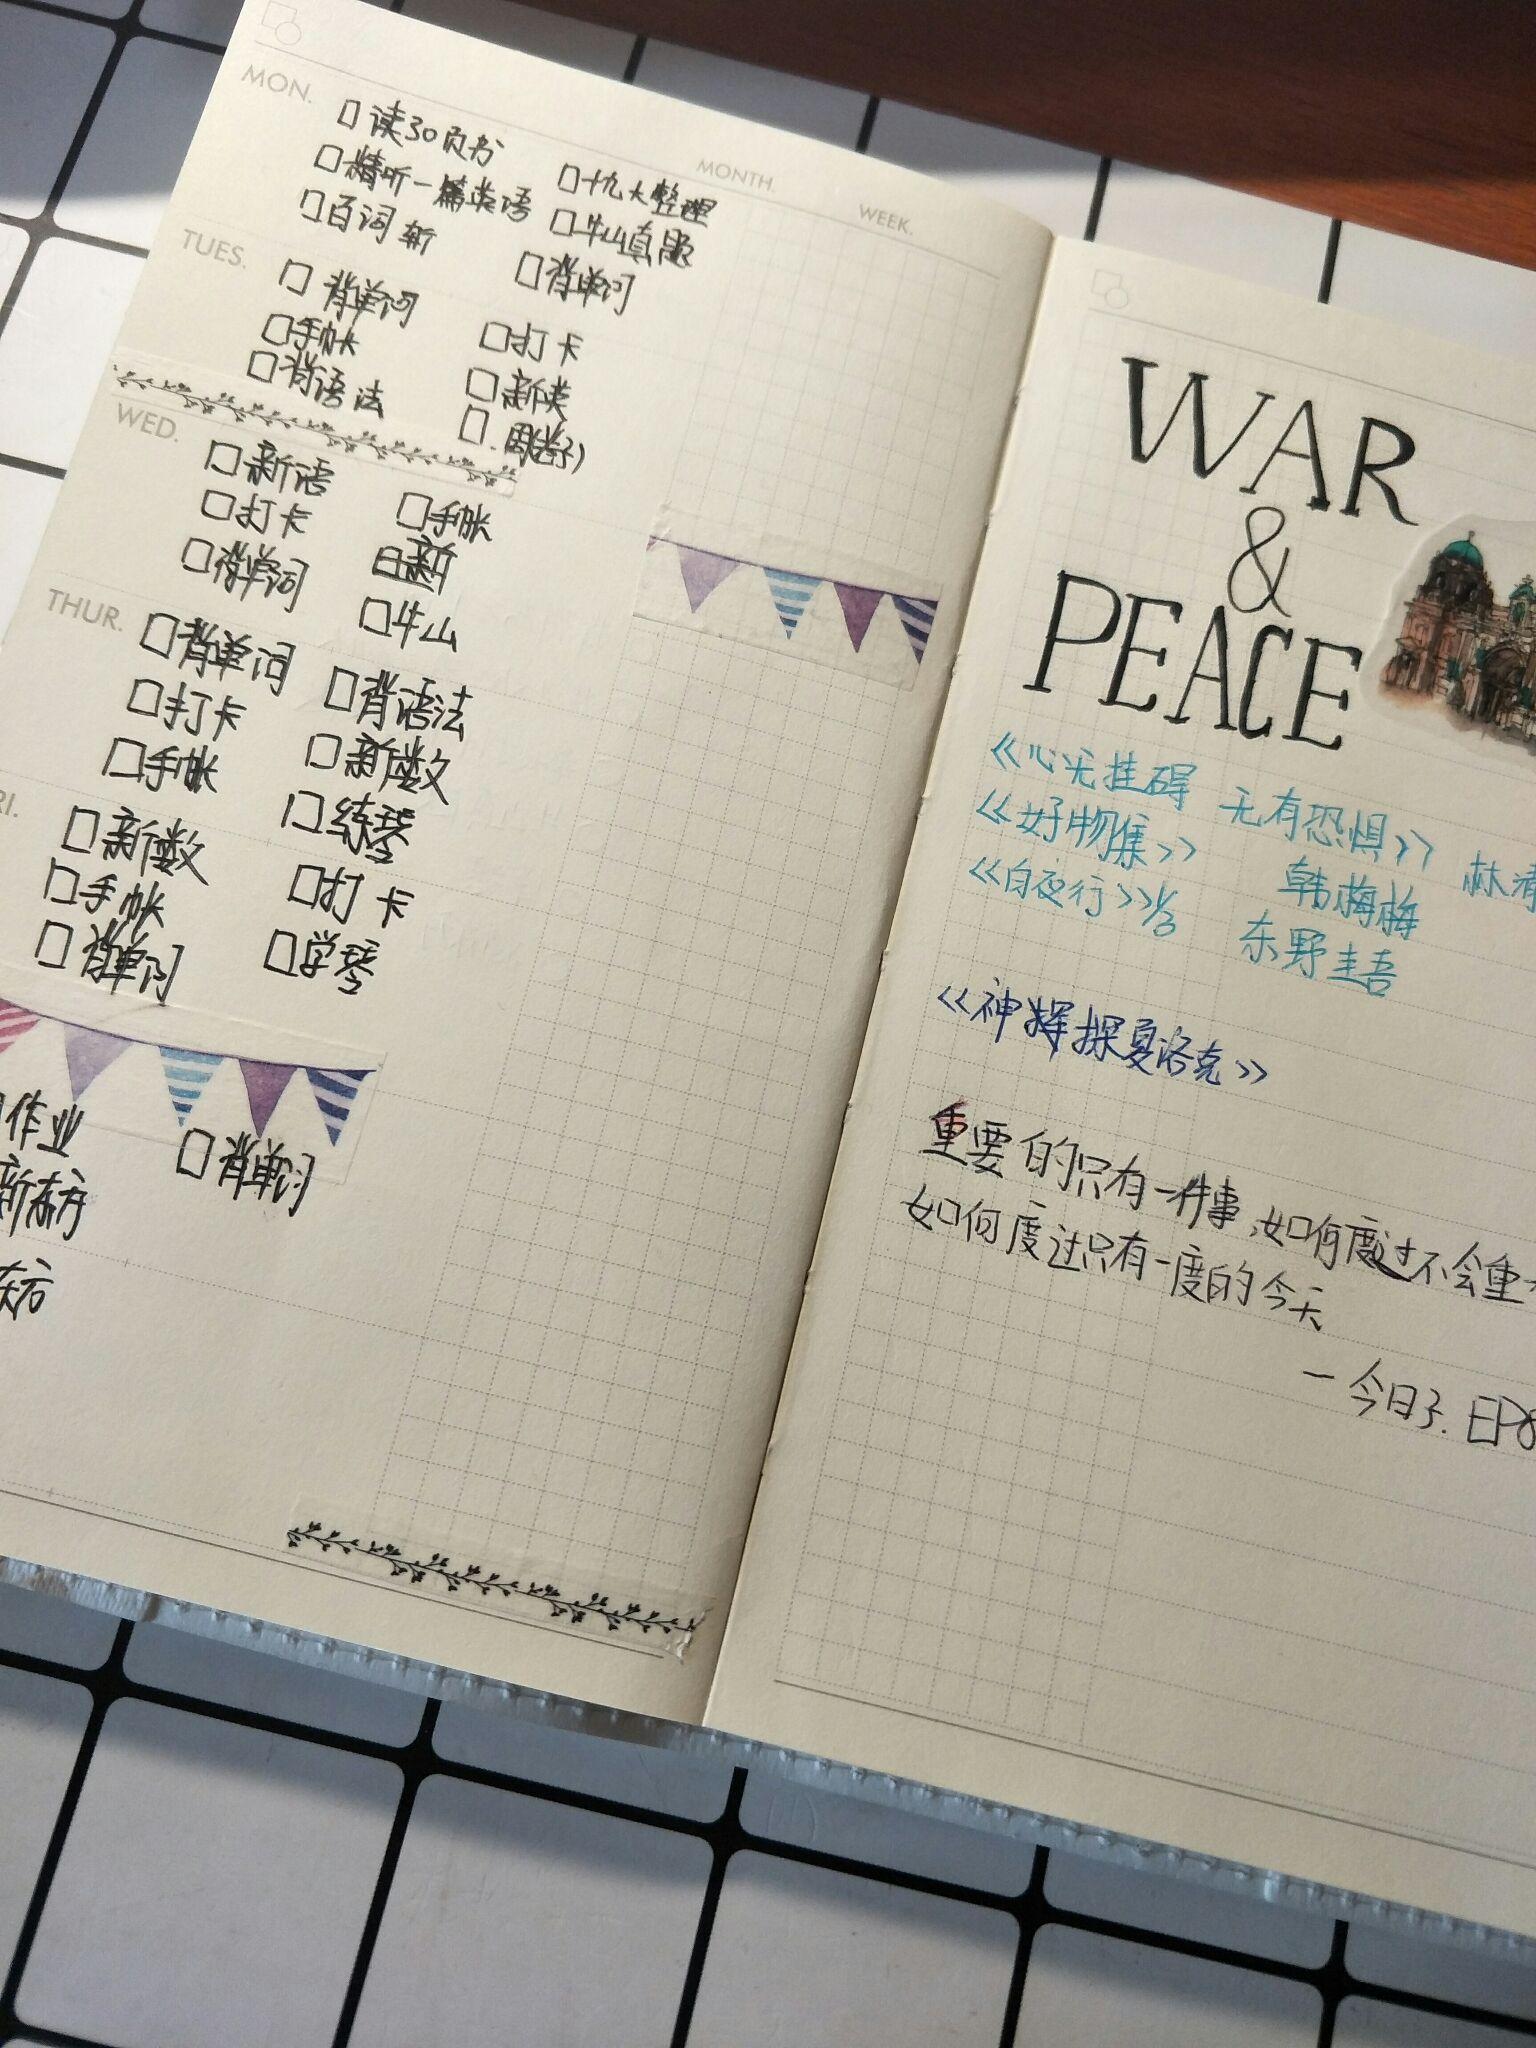 MONTH.
WEEK.
MON.
□读30页书
□精听一篇英语
□百词斩
□十九大整理
□牛山真题
□背单词
TUES.
□背单词
□手帐
□背语法
□打卡
□新英
□
WED.
□新语
□打卡
□背单词
□手帐
□新
□牛山
THUR.
□背单词
□打卡
□手帐
□背语法
□新数
□练琴
RI.
□新数
□手帐
□背单词
□打卡
□学琴
作业
新东方
□背单词
WAR
&
PEACE
《心无挂碍 无有恐惧》 林清
《好物集》 韩梅梅
《白夜行》1/3 东野圭吾
《神探夏洛克》
重要的只有一件事,如何度过不会重
如何度过只有一度的今天
—今日子.EP8